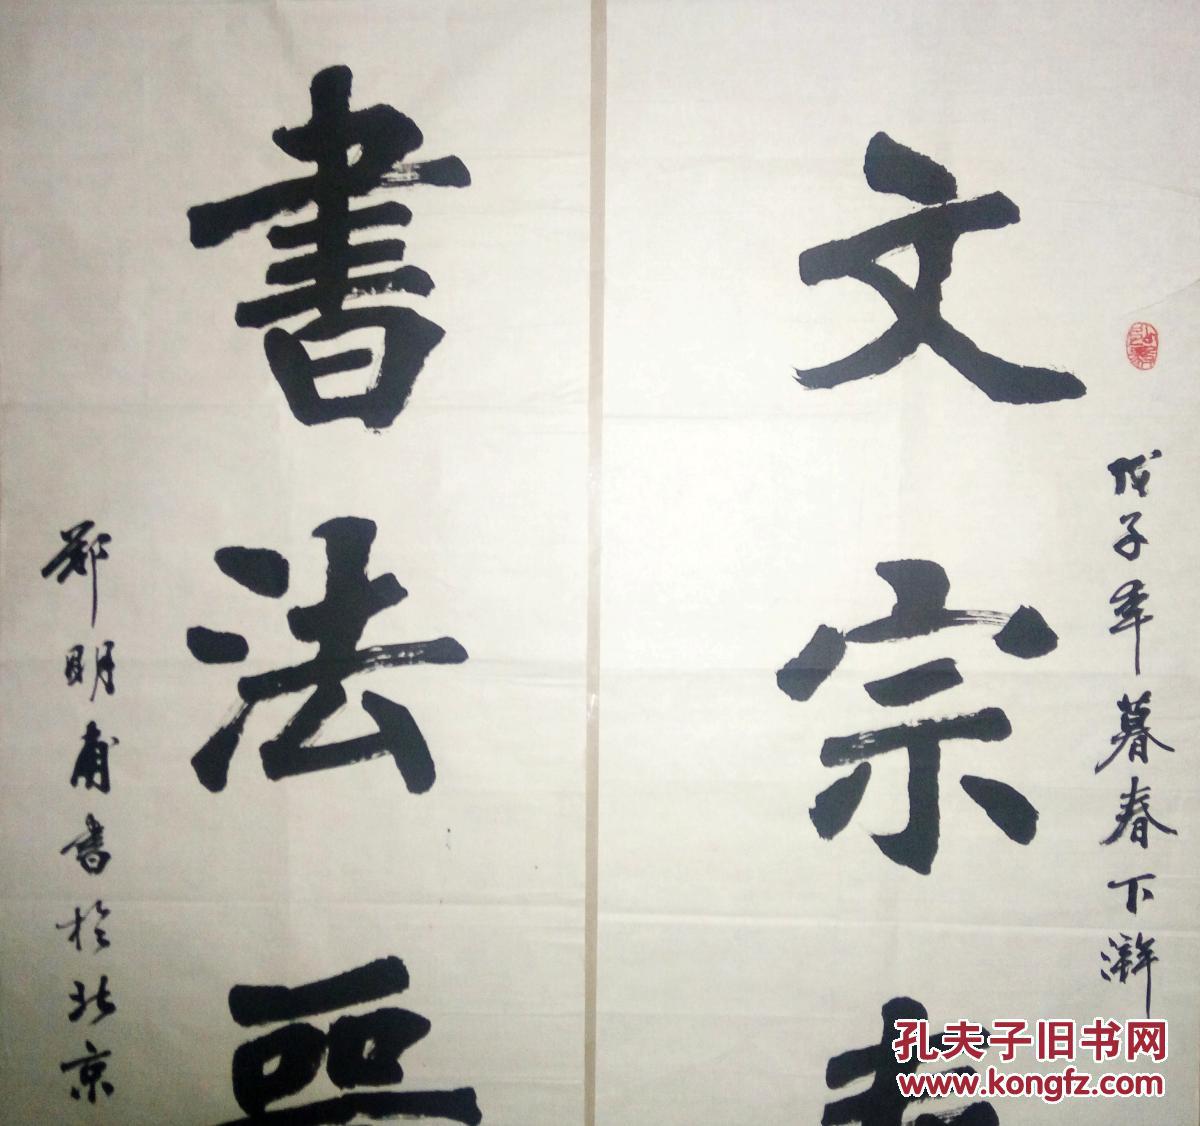 戊子年暮春下澣
文宗
書法
郑明甫書於北京
孔夫子旧书网
www.kongfz.com